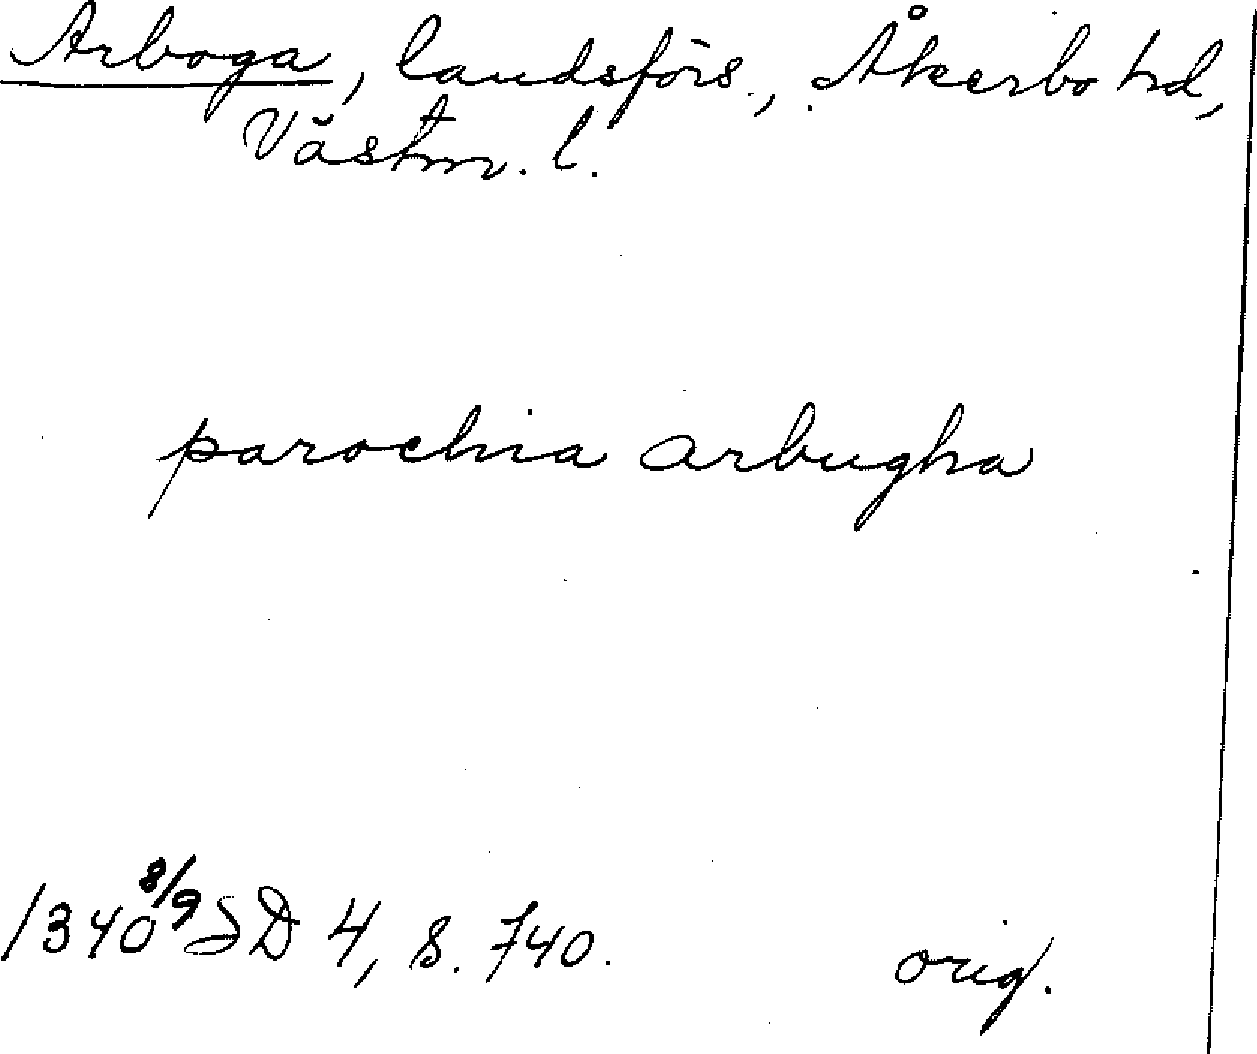 Arboga, landsförs., Åkerbo hd,
Västm. l.
parochia arbugha
1340 8/9 SD 4, s. 740. orig.